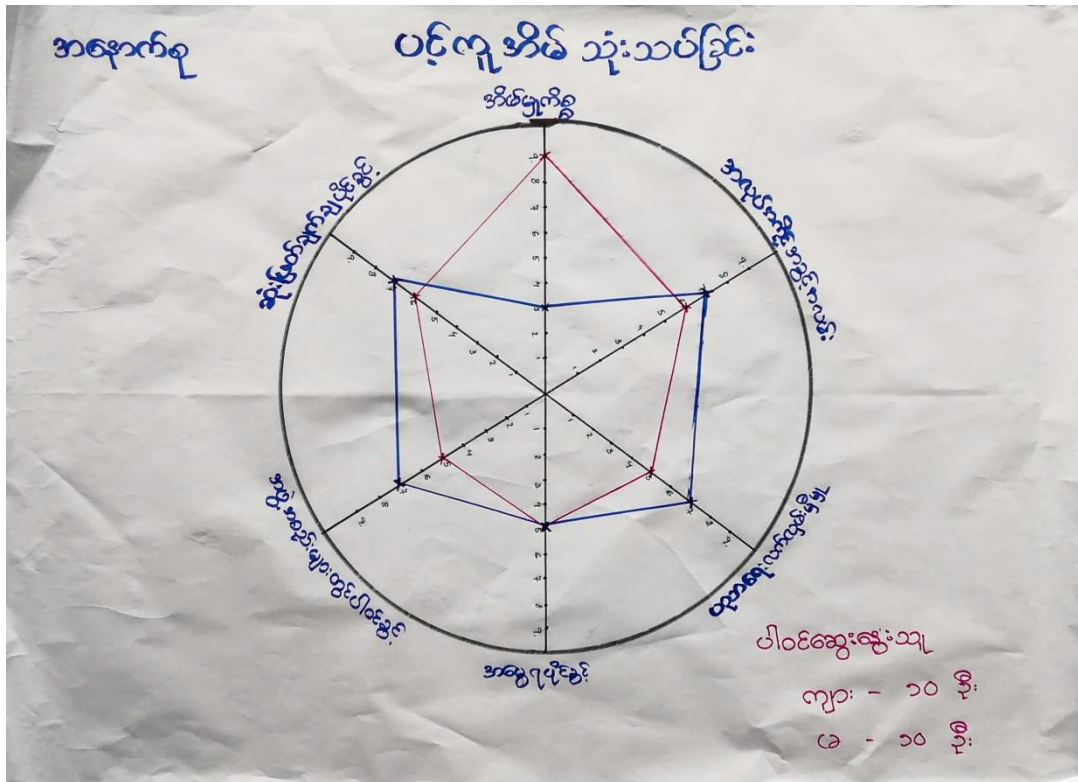 အနောက်စု
ပင့်ကူအိမ် သုံးသပ်ခြင်း
အိမ်မှုကိစ္စ
အလုပ်အကိုင် အခွင့်အလမ်း
ပညာရေးလက်လှမ်းမှီမှု
အမွေရပိုင်ခွင့်
အဖွဲ့အစည်းများတွင်ပါဝင်ခွင့်
ဆုံးဖြတ်ချက်ချပိုင်ခွင့်
ပါဝင်ဆွေးနွေးသူ
ကျား - ၁၀ ဦး
မ - ၁၀ ဦး